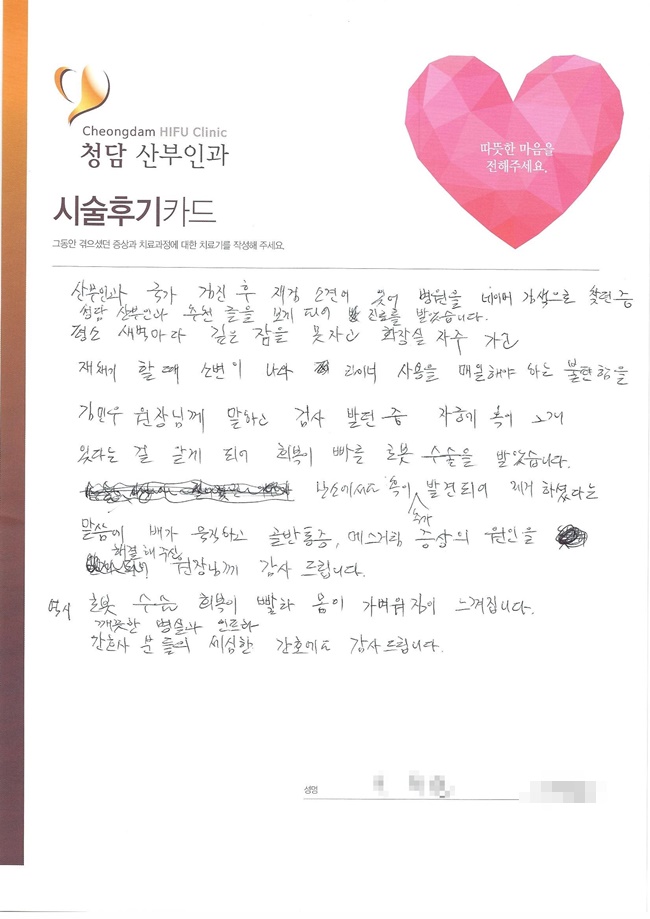 Cheongdam HIFU Clinic
청담 산부인과
따뜻한 마음을
전해주세요.
시술후기카드
그동안 겪으셨던 증상과 치료과정에 대한 치료기를 작성해 주세요.
산부인과 국가 검진 후 재검 소견이 있어 병원을 네이버 검색으로 찾던 중
청담 산부인과 추천 글을 보게 되어 진료를 받았습니다.
평소 새벽마다 깊은 잠을 못자고 화장실 자주 가고
재채기 할 때 소변이 나와 라이너 사용을 매일해야 하는 불편함을
김민우 원장님께 말하고 검사 받던 중 자궁에 혹이 3개
있다는 걸 알게 되어 회복이 빠른 로봇 수술을 받았습니다.
난소에서도 혹이 추가 발견되어 제거 하셨다는
말씀에 배가 묵직하고 골반통증, 메스거림 증상의 원인을
해결해주신 원장님께 감사 드립니다.
역시 로봇 수술 회복이 빨라 몸이 가벼워짐이 느껴집니다.
깨끗한 병실과 인트라
간호사 분들의 세심한 간호에도 감사드립니다.
성명